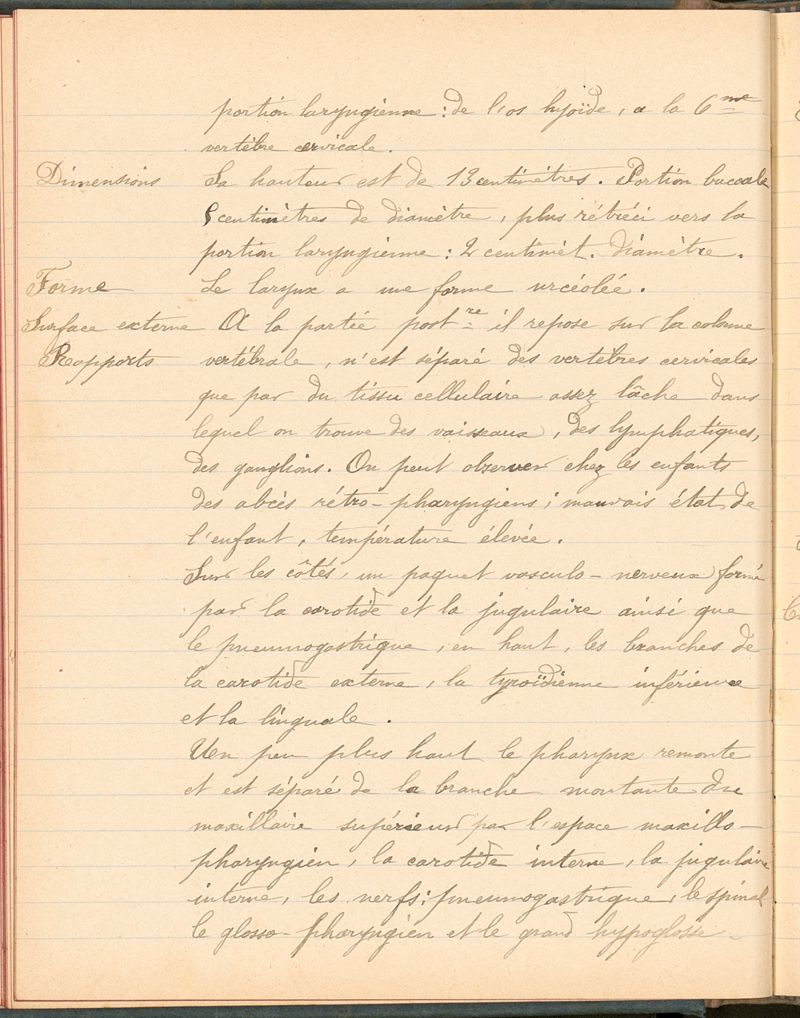 portion laryngienne : de l'os hyoïde, a la 6me
vertèbre cervicale.
Dimensions La hauteur est de 13 centimètres. Portion buccale
5 centimètres de diamètre, plus rétréci vers la
portion laryngienne : 2 centimèt. diamètre.
Forme Le larynx a une forme urcéolée.
Surface externe A la partée postre il repose sur la colonne
Rapports vertébrale, n'est séparé des vertèbres cervicales
que par du tissu cellulaire assez lâche dans
lequel on trouve des vaisseaux, des lymphatiques,
des ganglions. On peut observer chez les enfants
des abcès rétro-pharyngiens ; mauvais état de
l'enfant, température élevée.
Sur les côtés, un paquet vasculo-nerveux formé
par la carotide et la jugulaire ainsi que
le pneumogastrique, en haut, les branches de
la carotide externe, la tyroïdienne inférieure
et la linguale.
Uen peu plus haut le pharynx remonte
et est séparé de la branche montante du
maxillaire supérieur par l'espace maxillo-
pharyngien, la carotide interne, la jugulaire
interne, les nerfs : pneumogastrique, le spinal
le glosso-pharyngien et le grand hypoglosse.